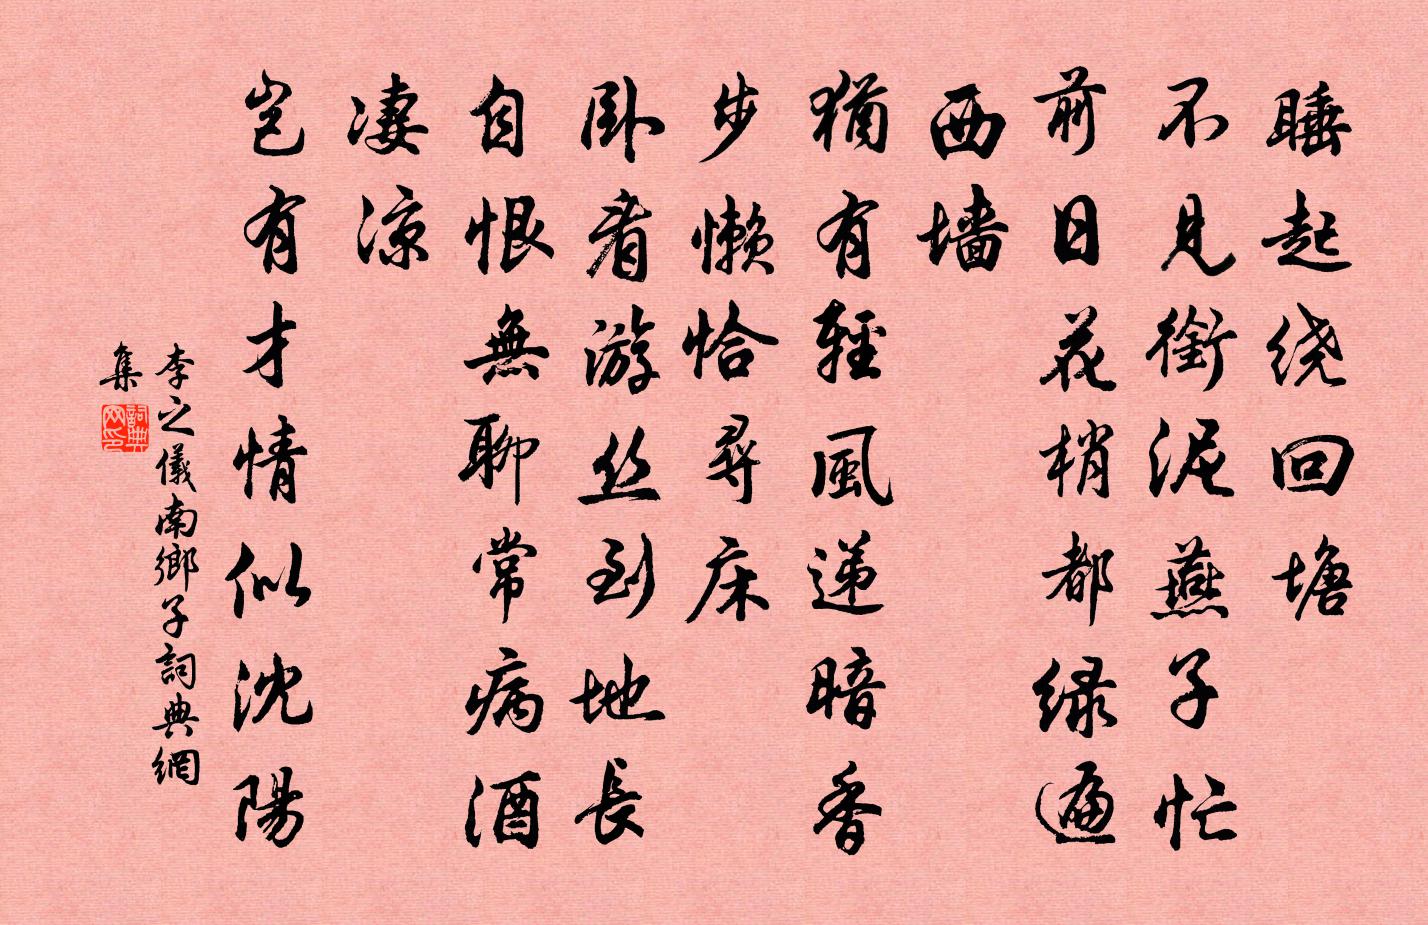 睡起绕回塘
不见銜泥燕子忙
前日花梢都绿遍
西墙
猶有輕風递暗香
步懒恰尋床
卧看游丝到地長
自恨無聊常病酒
凄凉
岂有才情似沈陽
李之儀南鄉子詞典網
集
詞典
网印